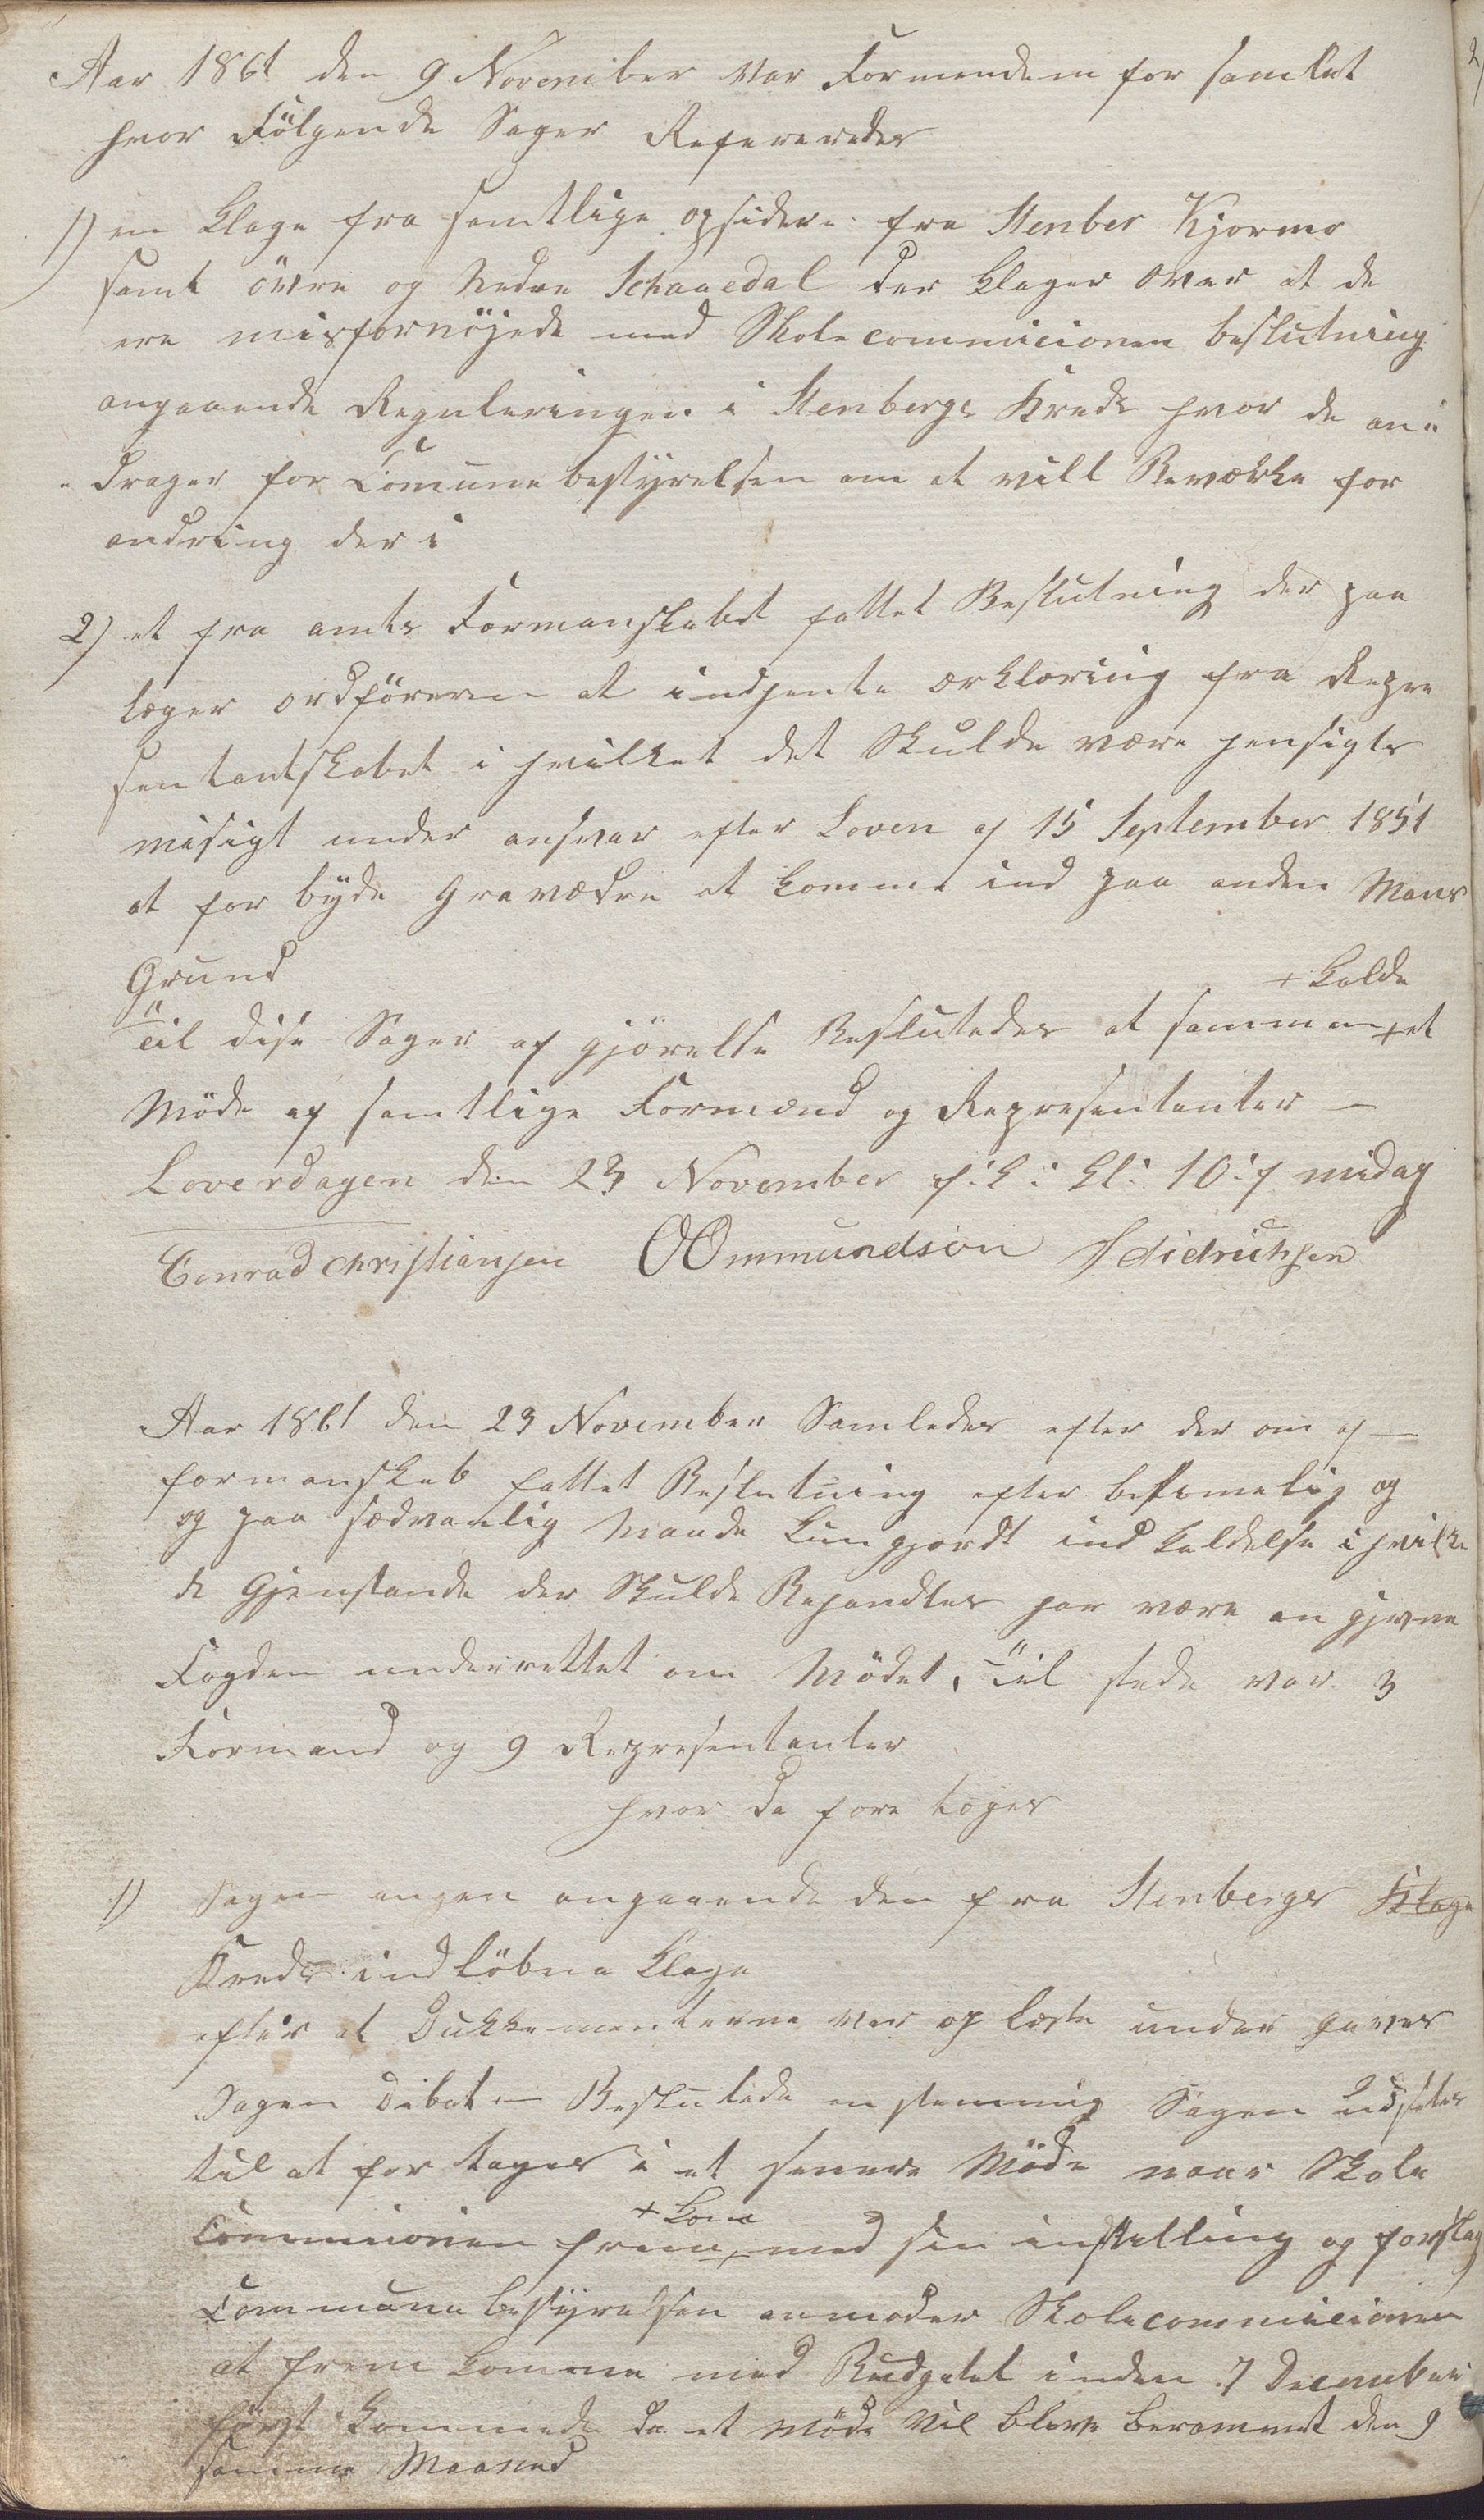 Aar 1861 den 9 November var Formendem for samlet
hvor Følgende Sager Refereredes
1) en Klage fra samtlige opsidere fra Stenber Kjormo
samt övre og Nedre Schaaedal der Klager over at de
ere misfornöjede med Skolecommicionen beslutning
angaaende Reguleringen i Stenbergs Kreds hvor de an„
„drager for Comunebestyrelsen om at vill Bevække for
andring der i
2) et fra amts Formanskabet fattet Beslutning der paa
læger ordföreren at indhente ærkloring fra Repre
sentantskabet i hvilket det Skulde være hensigts
misigt under ansvar efter Loven af 15 September 1851
at for byde Gravædre at komme ind paa anden Mans
Grund
+ Kalde
Til dise Sager af gjörelse Besluttedes at sammen + et
Möde af samtlige Formænd og Representanter —
Loverdagen den 23 November f: k: kl: 10: f midag
Conrad Christiansen OOmmundson J didrichsen
Aar 1861 den 23 November Samledes efter der om af —
formanskab fattet Beslutning efter bestemelig og
og paa sædvanlig Maade Kungjordt ind kaldelse i hvilke
de Gjenstande der Skulde Behandles har være an givne
Fogden underrettet om Mödet, Til stede var 3
Formænd og 9 Representanter
hvor da fore toges
1) Sagen angaa angaaende den fra Stenbergs Klage
Kreds indløbne Klage
efter at Dukkementerne var op læste under gaves
Sagen Dibat — Beslutede enstemmig Sagen Udsættes
til at for tages i et senere Möde naar Skole
+ Kom
Commicionen frem + med sin instilling og forslag
Communebestyrelsen anmoder Skolecommicionen
at frem komme med Budgetet inden 7 December
først Kommende da et Möde vil blive berammet den 9
samme Maaned